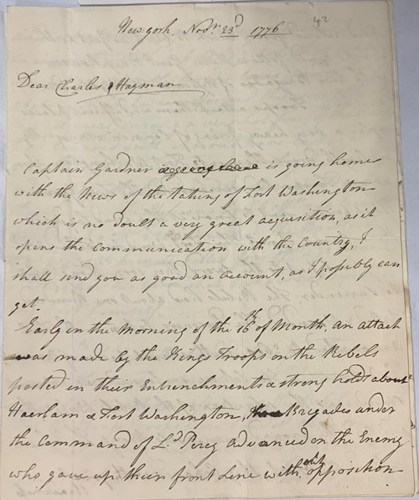 New york Novr. 23d 1776
42
Dear Charles & Hagman
Captain Gardner is going home
with the News of the taking of Fort Washington
which is no doubt a very great acquisition, as it
opens the Communication with the Country, I
shall send you as good an account, as I possibly can
get.
Early in the Morning of the 16th of Month, an attack
was made by the Kings Troops on the Rebels
posted in their Entrenchments & strong holds about
Haerlam & Fort Washington, Brigades under
the Command of Ld. Percy advanced on the Enemy
who gave up their front Line with only opposition